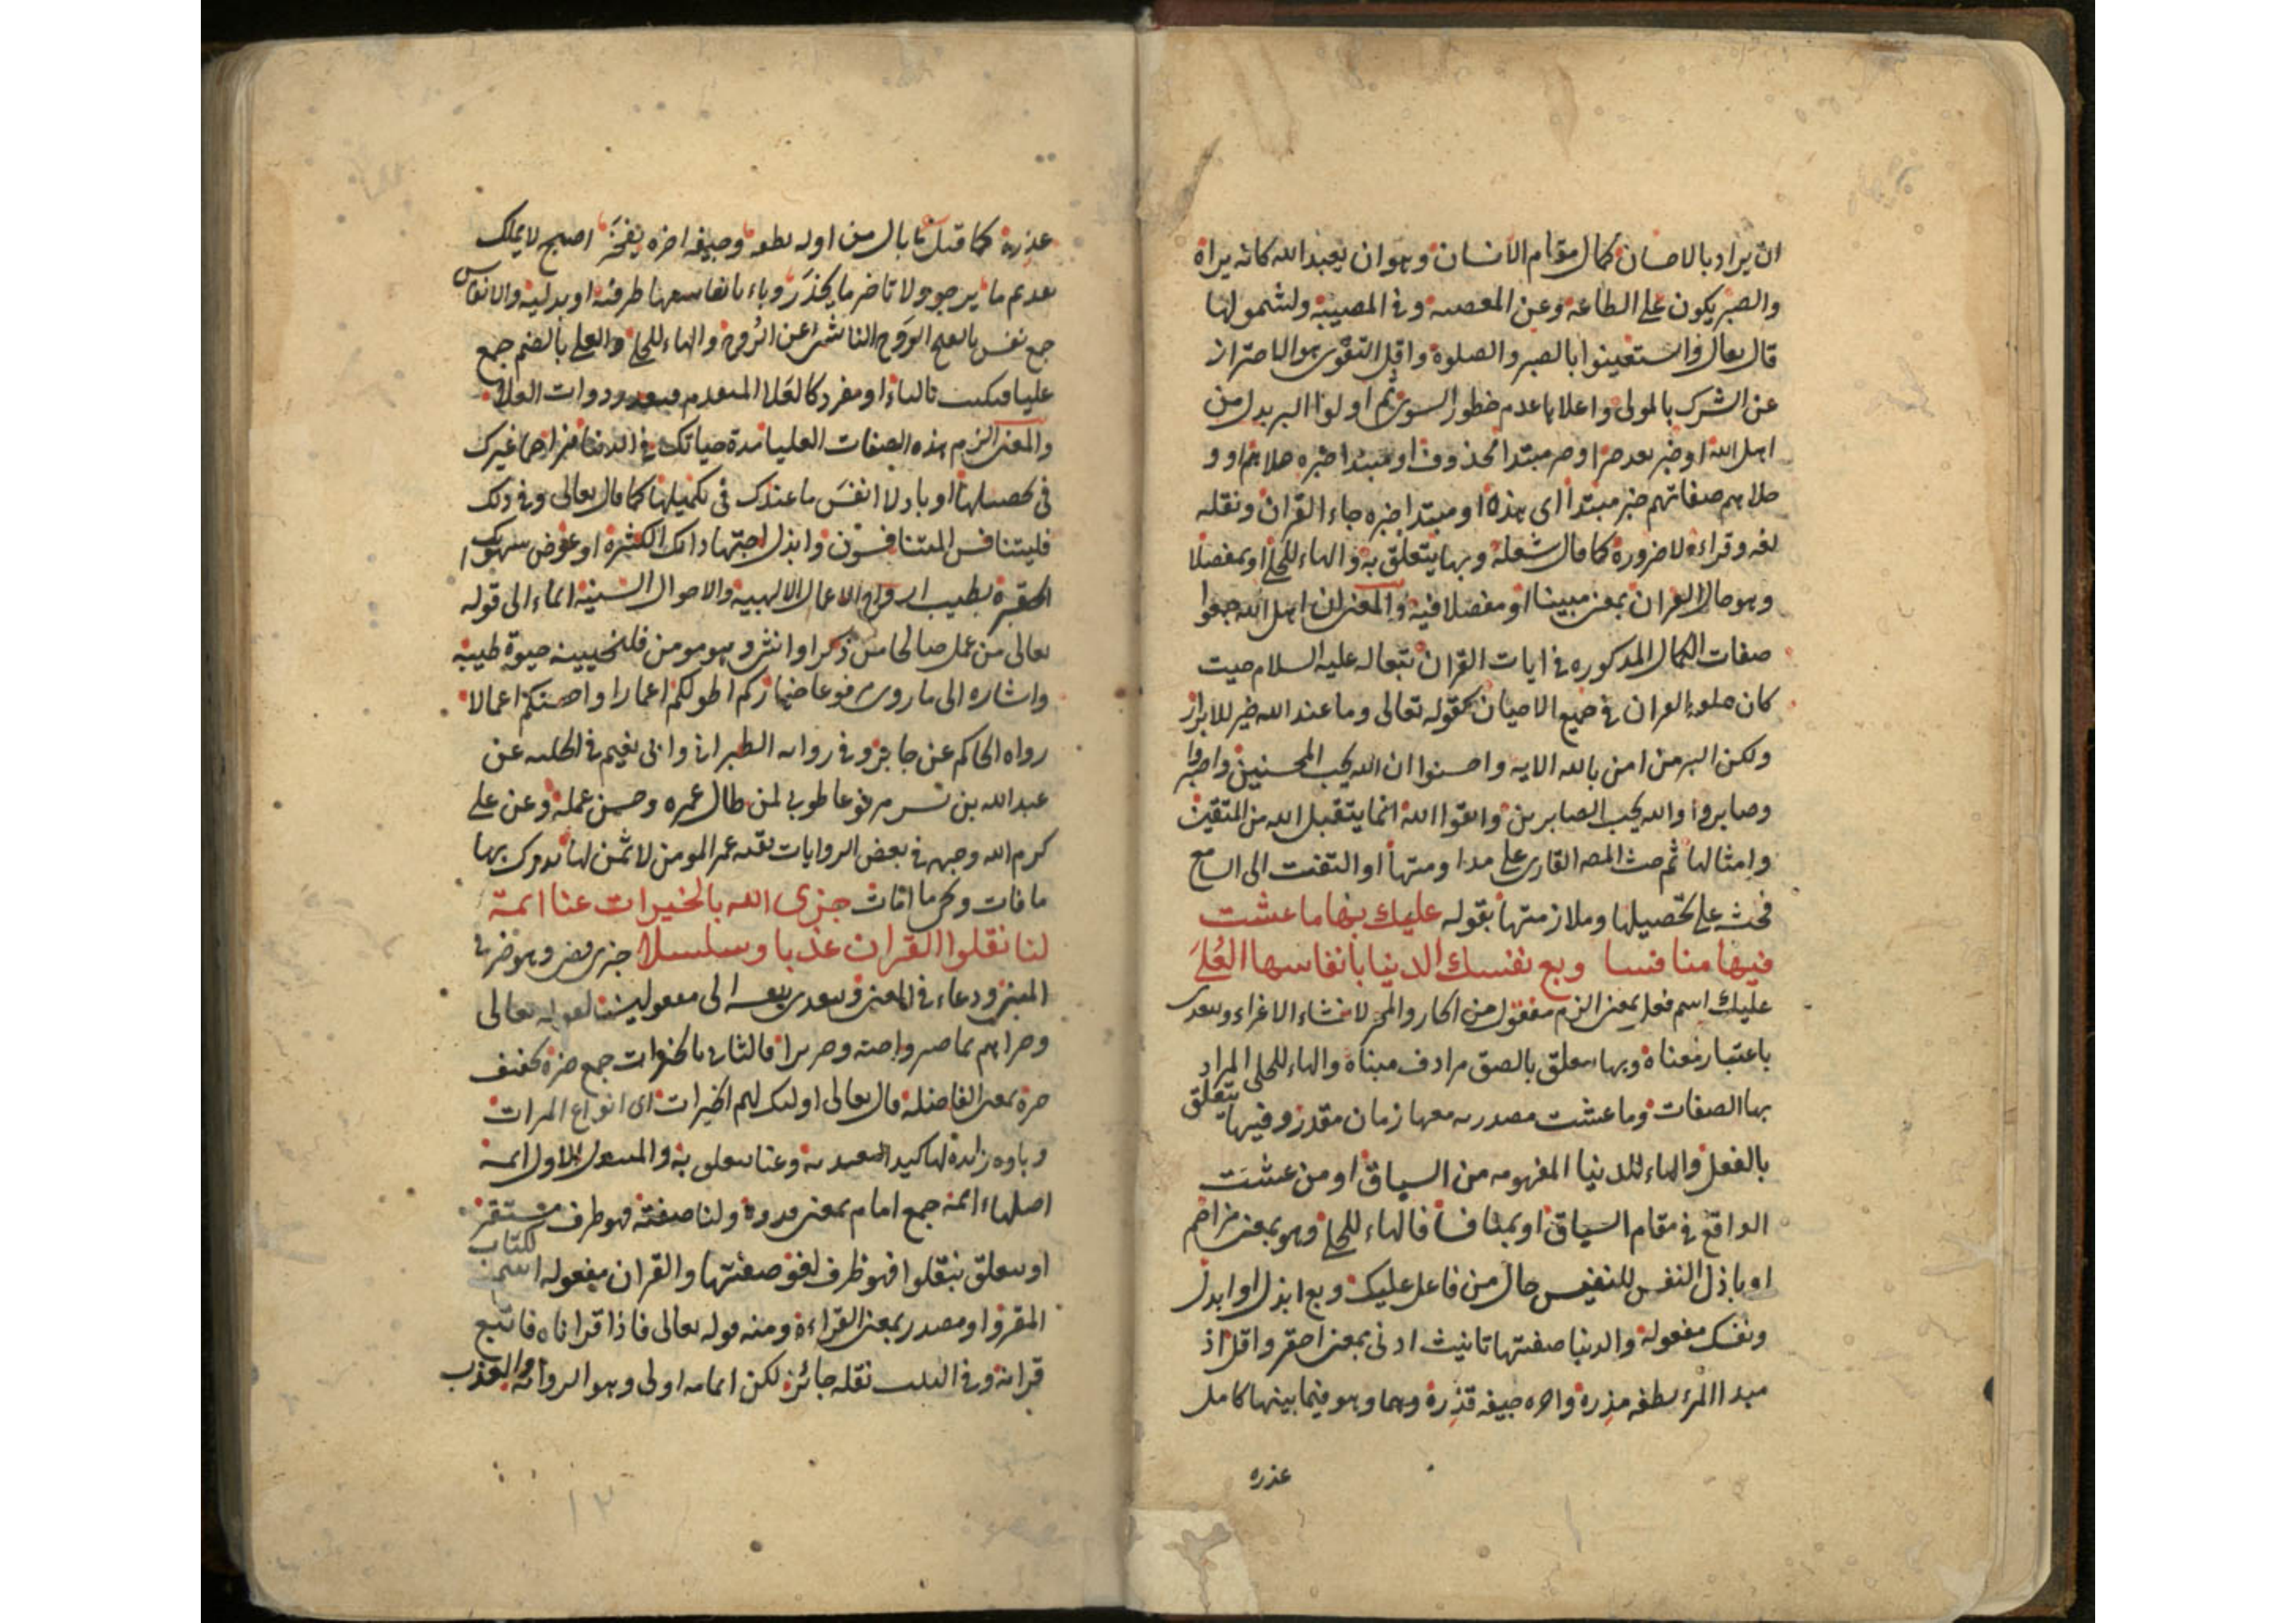 ان يراد بالاحسان كمال مقام الانسان وهو ان يعبد الله كانه يراه
والصبر يكون على الطاعة وعن المعصية وفي المصيبة ولشمولها
قال تعالى واستعينوا بالصبر والصلوة واقل التقوى هو الاحتراز
عن الشرك بالمولى واعلاها عدم خطور السوى ثم اولوا البر بدل من
اهل الله او خبر بعد خبر او خبر مبتدا محذوف او مبتدا خبره حلاهم او و
حلاهم صفاتهم خبر مبتدا اى هذه او مبتدا خبره جاء القران ونقله
لغة وقراءة لا ضرورة كما قال شعلة وبها يتعلق به والهاء للحلى او بمفصلا
وهو حال القران بمعنى مبينا او مفصلا فيه والمعنى ان اهل الله جمعوا
صفات الكمال المذكورة في ايات القران تبعا له عليه السلام حيث
كان خلقه القران في جميع الاحيان كقوله تعالى وما عند الله خير للابرار
ولكن البر من امن بالله الاية واحسنوا ان الله يحب المحسنين واصبروا
وصابروا والله يحب الصابرين واتقوا الله انما يتقبل الله من المتقين
وامثالها ثم حث المص القارى على مداومتها او التفت الى السامع
فحث على تحصيلها وملازمتها بقوله عليك بها ما عشت
فيها منافسا وبع نفسك الدنيا بأنفاسها العُلَى
عليك اسم فعل بمعنى الزم منقول من الجار والمجرور لانشاء الاغراء ويتعدى
باعتبار معناه وبها متعلق بالصق مرادف مبناه والهاء للحلى المراد
بها الصفات وما عشت مصدرية معها زمان مقدر وفيها يتعلق
بالفعل والهاء للدنيا المفهومة من السياق او من عشت
الواقع في مقام السياق او بمنافسا فالهاء للحلى وهو بمعنى مزاحم
او باذل النفس للنفيس حال من فاعل عليك وبع ابذل او ابدل
ونفسك مفعوله والدنيا صفتها تانيث ادنى بمعنى احقر واقل اذ
مبدا المرء نطفة مذرة واخره جيفة قذرة وهما وهو فيما بينها كامل
عذره
عذرة كما قيل ما بال من اوله نطفة وجيفة اخره يفخر اصبح لا يملك
تقديم ما يرجو ولا تاخير ما يحذر وباء بانفاسها ظرفية او بدلية والانفاس
جمع نفس بالفتح الروح الناشئ عن الروح والهاء للحلى والعلى بالضم جمع
عليا فيكتب بالياء او مفرد كالعلا المتقدم فيقدر ذوات العلا
والمعنى الزم هذه الصفات العليا مدة حياتك في الدنيا مزاحما غيرك
في تحصيلها او باذلا انفس ما عندك في تكميلها كما قال تعالى وفي ذلك
فليتنافس المتنافسون وابذل اجتهاداتك الكثيرة او عوض شهوتك
الحقيرة بطيب ارواح الاعمال الالهية والاحوال السنية ايماء الى قوله
تعالى من عمل صالحا من ذكر او انثى وهو مومن فلنحيينه حيوة طيبة
واشارة الى ما روى مرفوعا خياركم اطولكم اعمارا واحسنكم اعمالا
رواه الحاكم عن جابر وفي رواية الطبراني وابى نعيم في الحلية عن
عبد الله بن بسر مرفوعا طوبى لمن طال عمره وحسن عمله وعن على
كرم الله وجهه في بعض الروايات بقية عمر المومن لا ثمن لها يدرك بها
ما فات ويحى ما امات جزى الله بالخيرات عنا ائمة
لنا نقلوا القران عذبا وسلسلا جزى قضى وهو خبر في
المبنى ودعاء في المعنى ويتعدى بنفسه الى مفعولين لقوله تعالى
وجزاهم بما صبروا جنة وحريرا فالثانى بالخيرات جمع خيرة مخفف
خيرة بمعنى الفاضلة قال تعالى اولئك لهم الخيرات اى انواع المبرات
وباؤه زائدة لتاكيد التعدية وعنا متعلق به والمفعول الاول ائمة
اصلها ائمة جمع امام بمعنى قدوة ولنا صفته فهو ظرف مستقر
او متعلق بنقلوا فهو ظرف لغو صفتها والقران مفعوله اسم للكتاب
المقرو او مصدر بمعنى القراءة ومنه قوله تعالى فاذا قراناه فاتبع
قرانه وفي البيت نقله جائز لكن اتمامه اولى وهو الرواية والعذب